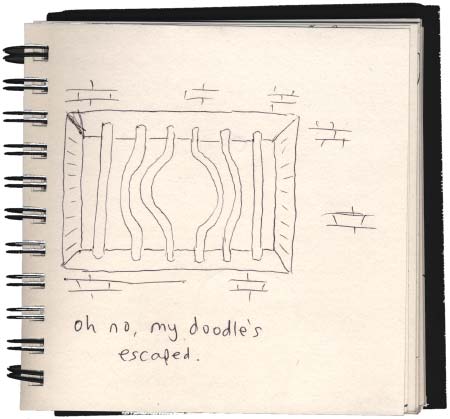 oh no, my doodle's
escaped.